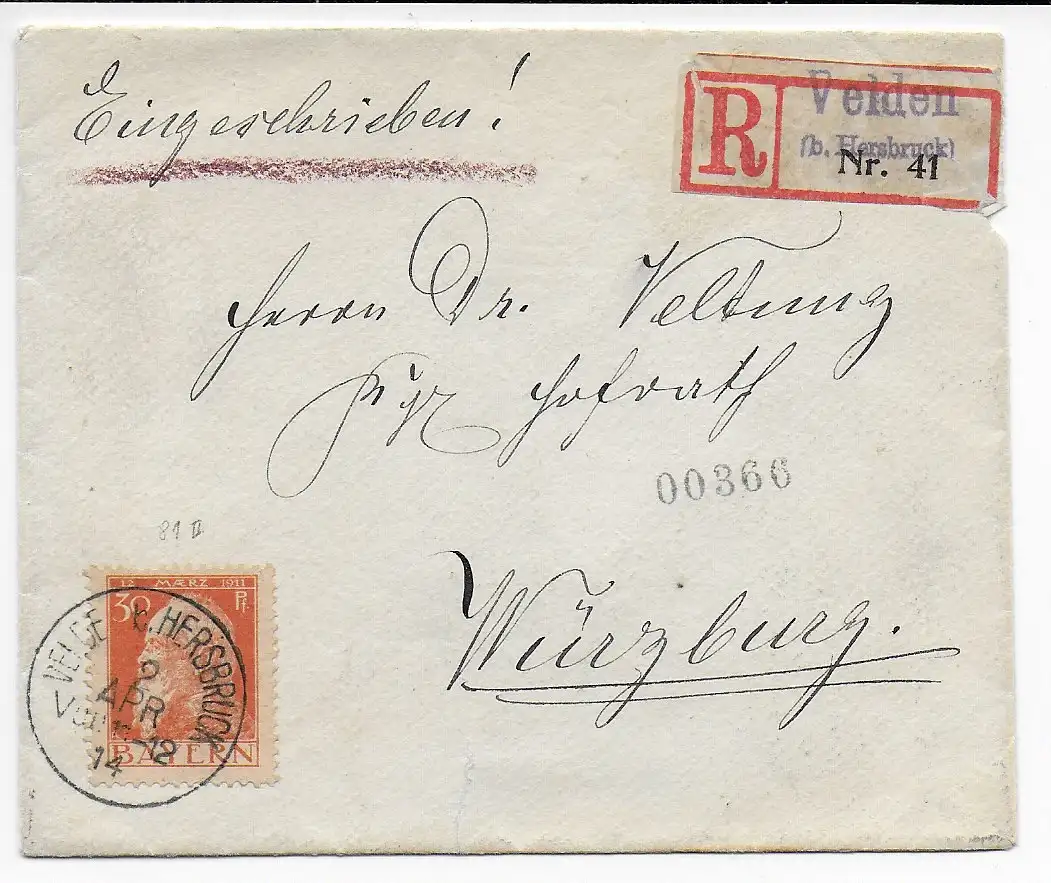 Eingeschrieben!
R
Velden
(b. Hersbruck)
Nr. 41
Herrn Dr. Veltung
Hofrath
00366
81 II
Würzburg.
12 MÆRZ 1911
30 Pf.
BAYERN
VELDEN b. HERSBRUCK
9
APR
Vorm. -12
14